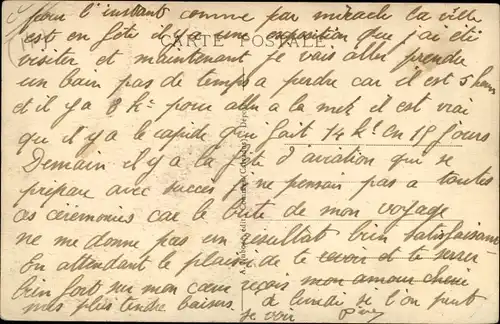 pour l'instant comme par miracle la ville
est en fête il y a une exposition que j'ai été
CARTE POSTALE
visiter et maintenant je vais aller prendre
un bain pas de temps a perdre car il est 5 heures
et il y a 8 k. pour aller a la mer il est vrai
qu il y a le rapide qui fait 14 k. en 15 jours
Demain il y a la fête d'aviation qui se
prépare avec succès je ne pensais pas a toutes
ces cérémonies car le but de mon voyage
ne me donne pas un résultat bien satisfaisant
En attendant le plaisir de te revoir et te serrer
bien fort sur mon cœur reçois mon amour chéri
mes plus tendre baisers. a lundi si l'on peut
se voir